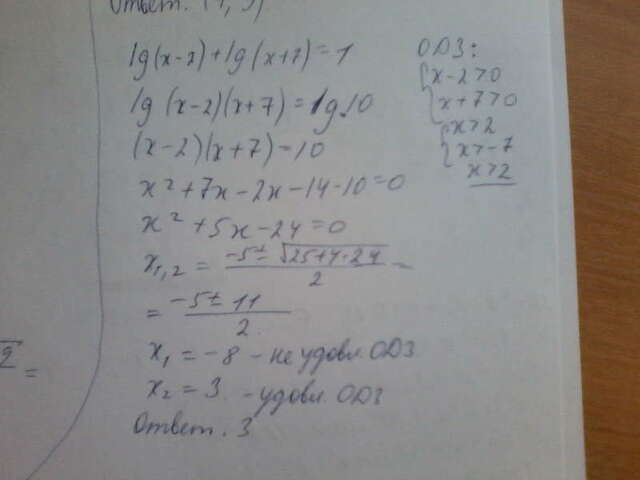 Ответ. (1, 9)
lg(x-2)+lg(x+7)=1
lg(x-2)(x+7)=lg10
(x-2)(x+7)=10
x²+7x-2x-14-10=0
x²+5x-24=0
x₁,₂ = (-5±√(25+4·24))/2 =
= (-5±11)/2
x₁ = -8 - не удовл. ОДЗ
x₂ = 3 - удовл. ОДЗ
Ответ. 3
ОДЗ:
x-2>0
x+7>0
x>2
x>-7
x>2
=